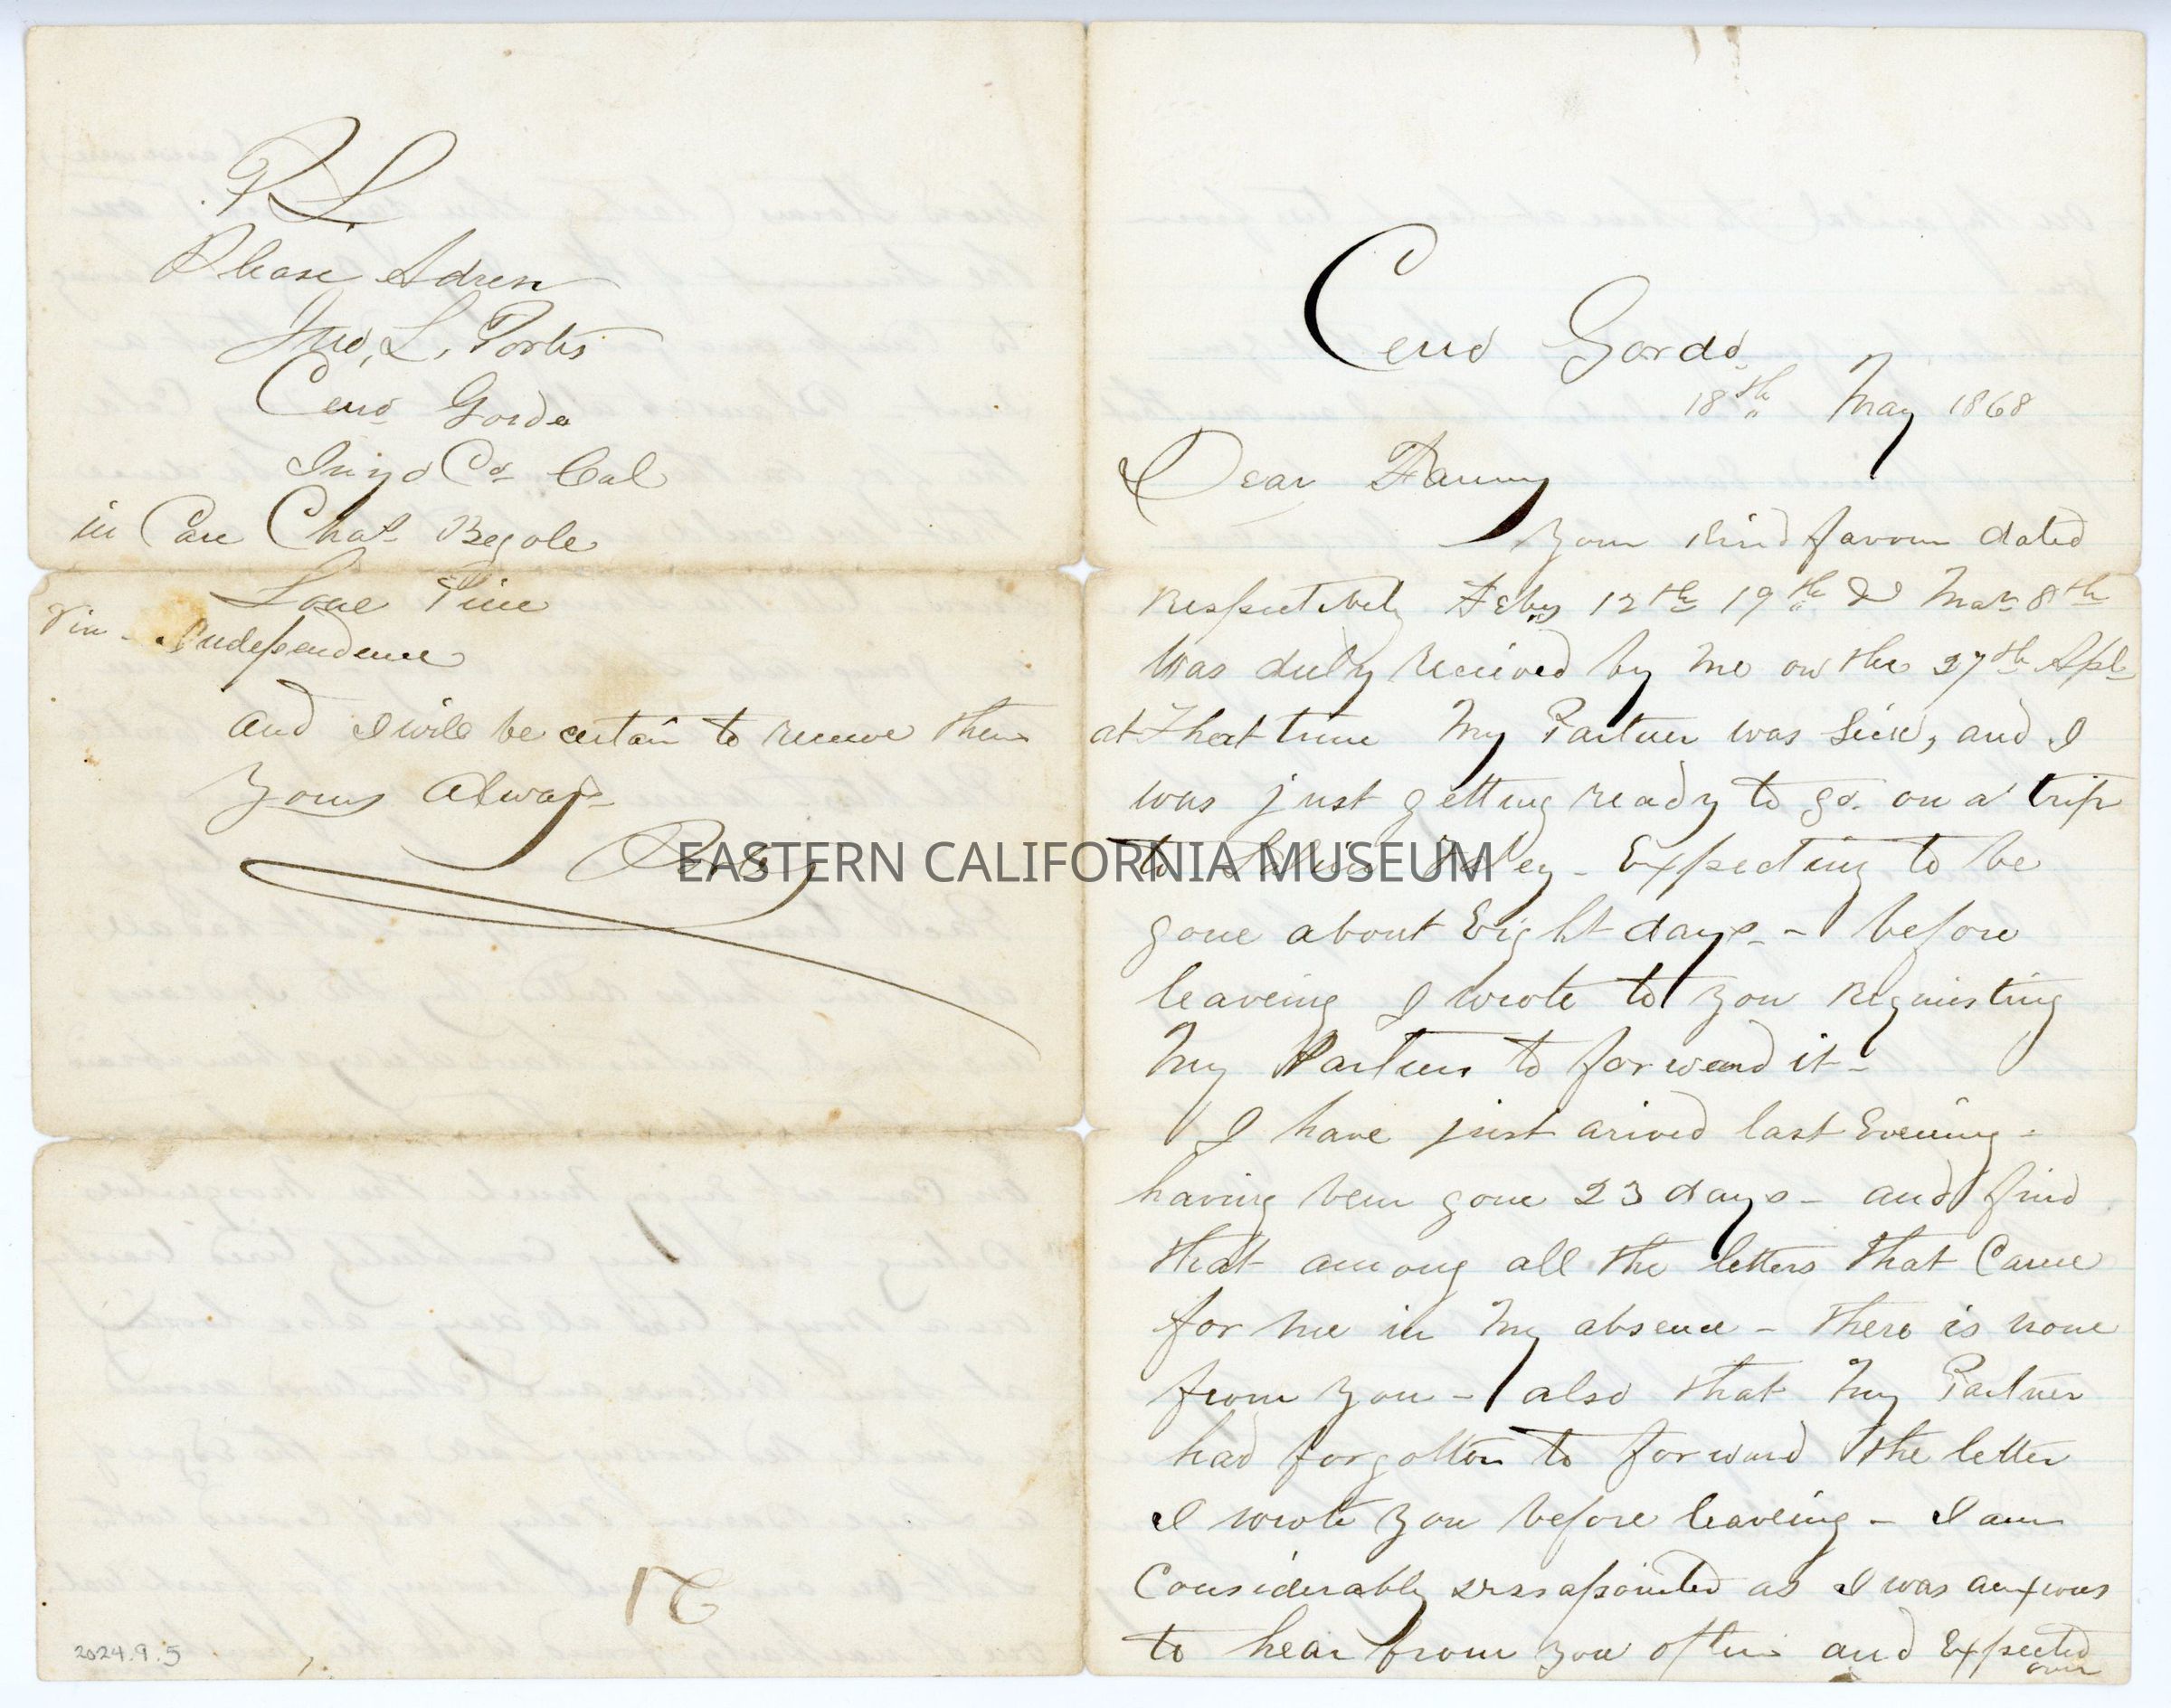 P.S.
Please Adress
Jno, L, Porter
Cerro Gordo
Inyo Co Cal
in Care Chas Begole
Lone Pine
Via - Independence
and I will be certain to receive them
Yours Always
EASTERN CALIFORNIA MUSEUM
2024.9.5
Cerro Gordo
18th May 1868
Dear Fanny
Your Kind favour dated
Respectively Feby 12th 19th & Mar 8th
Was duly Recieved by me on the 27th Apl
at That time My Partner was Sick, and I
was just getting ready to go on a trip
to Saline Valey - Expecting to be
gone about Eight days - before
leaveing I wrote to you Requisting
My Partner to forward it -
I have just arived last Evening -
having been gone 23 days - and find
that among all the letters that Came
for me in My absence - there is none
from you - also that My Partner
had forgotten to forward the letter
I wrote you before leaveing - I am
Considerably dissapointed as I was anxious
to hear from you often and Expected
over